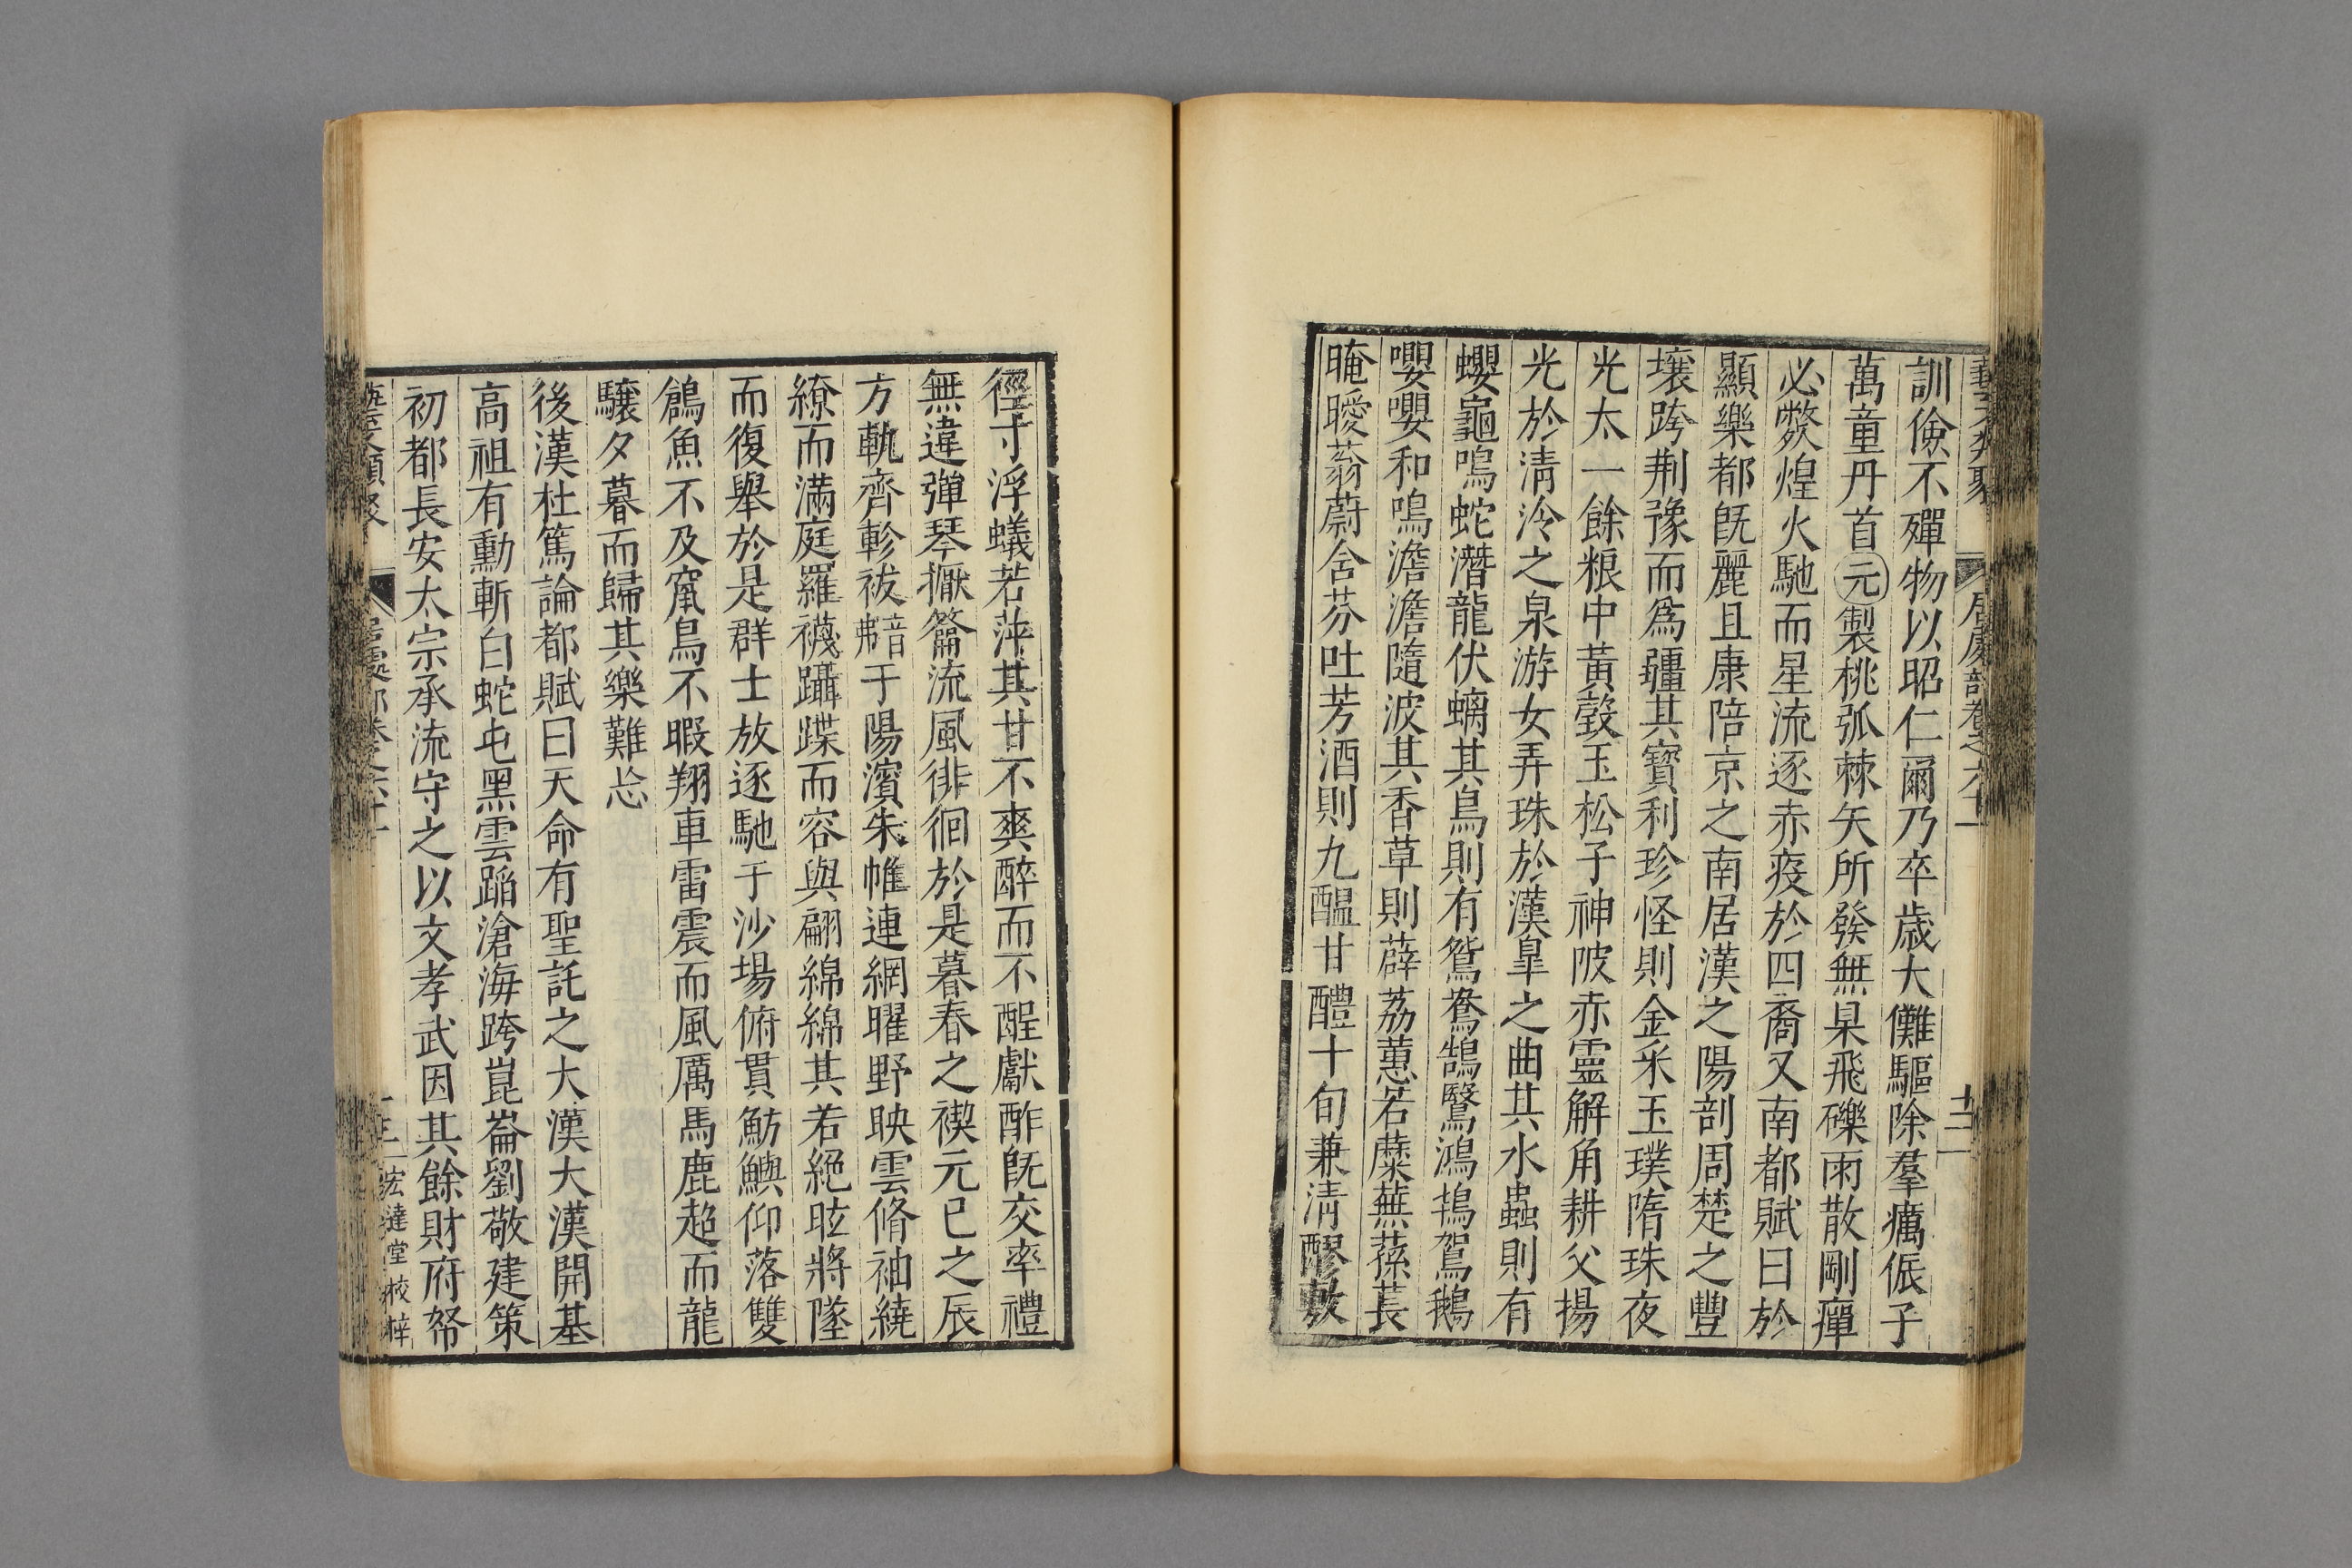 訓儉不殫物以昭仁爾乃卒歲大儺驅除羣癘侲子
萬童丹首元製桃弧棘矢所發無臬飛礫雨散剛癉
必斃煌火馳而星流逐赤疫於四裔又南都賦曰於
顯樂都旣麗且康陪京之南居漢之陽剖周楚之豐
壤跨荆豫而爲疆其寶利珍怪則金采玉璞隋珠夜
光太一餘粮中黃瑴玉松子神陂赤靈解角耕父揚
光於清泠之泉游女弄珠於漢臯之曲其水蟲則有
蠳龜鳴蛇潛龍伏螭其鳥則有鴛鴦鵠鷖鴻鴇駕鵝
嚶嚶和鳴澹澹隨波其香草則薜荔蕙若蘪蕪蓀萇
晻曖蓊蔚含芬吐芳酒則九醞甘醴十旬兼清醪敷
徑寸浮蟻若萍其甘不爽醉而不酲獻酢旣交率禮
無違彈琴擫籥流風徘徊於是暮春之禊元巳之辰
方軌齊軫祓音弗于陽濱朱帷連網曜野映雲脩袖繞
繚而滿庭羅襪躡蹀而容與翩綿綿其若絕眩將墜
而復舉於是群士放逐馳于沙場俯貫魴鱮仰落雙
鶬魚不及竄鳥不暇翔車雷震而風厲馬鹿超而龍
驤夕暮而歸其樂難忘
後漢杜篤論都賦曰天命有聖託之大漢大漢開基
高祖有勳斬白蛇屯黑雲蹈滄海跨崑崙劉敬建策
初都長安太宗承流守之以文孝武因其餘財府帑
宏達堂校梓